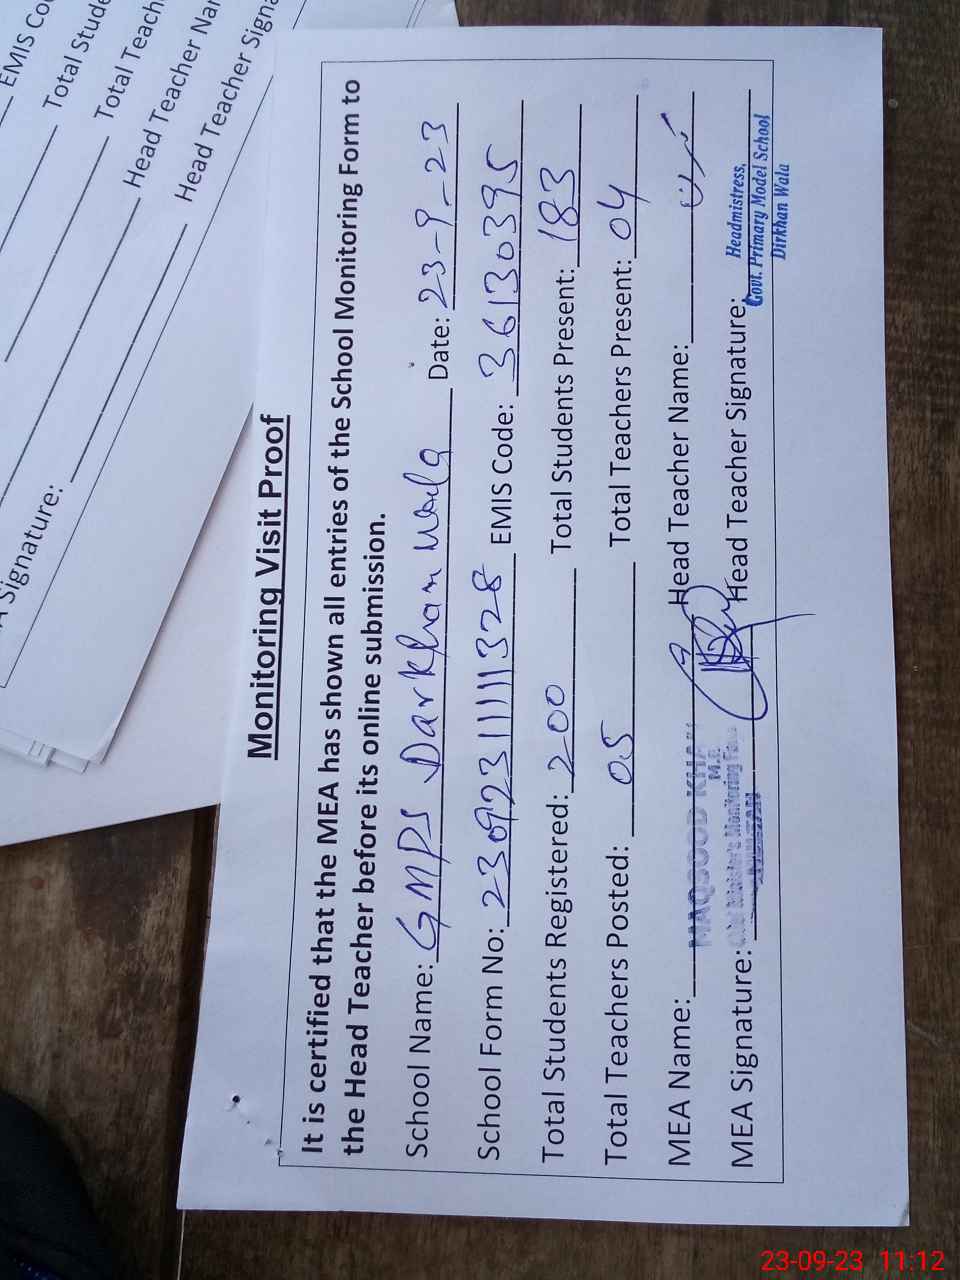 EMIS Co
Total Stude
Total Teach
Head Teacher Nar
Head Teacher Signa
Signature:
Monitoring Visit Proof
It is certified that the MEA has shown all entries of the School Monitoring Form to
the Head Teacher before its online submission.
School Name: GMPS Darkhan Wala Date: 23-9-23
School Form No: 230923111111328 EMIS Code: 36130395
Total Students Registered: 200 Total Students Present: 183
Total Teachers Posted: 05 Total Teachers Present: 04
MEA Name: MAQSOOD KHA Head Teacher Name:
Chief Minister's Monitoring Force
MEA Signature: Head Teacher Signature:
Headmistress,
Govt. Primary Model School
Dirkhan Wala
23-09-23 11:12